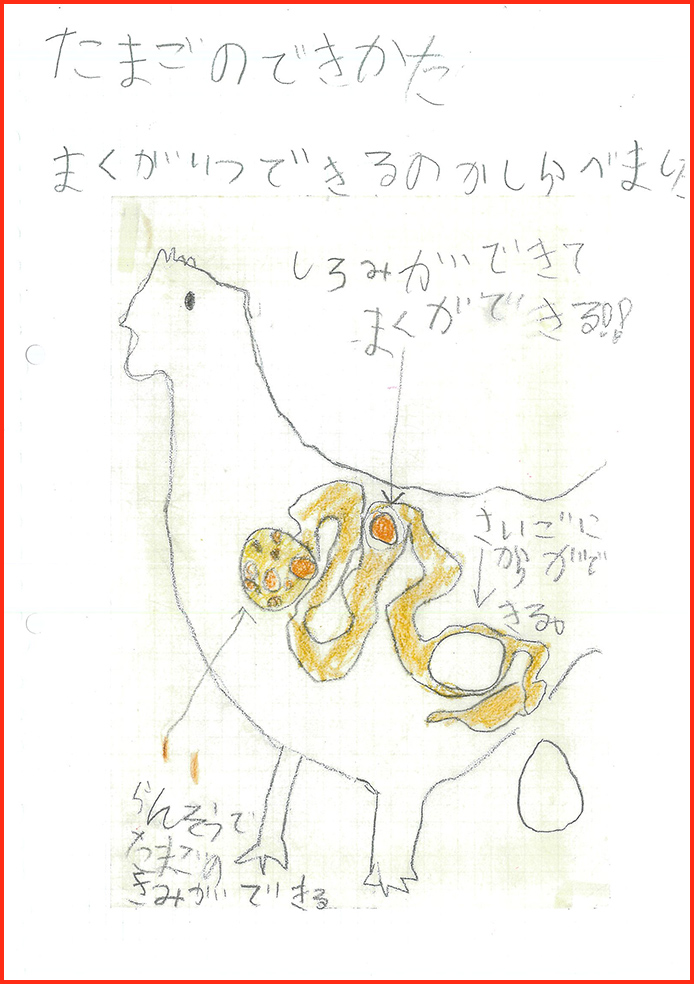 たまごのできかた
まくがいつできるのかしらべました
しろみができて
まくができる!!
さいごに
からがで
きる。
らんそうで
たまごの
きみができる